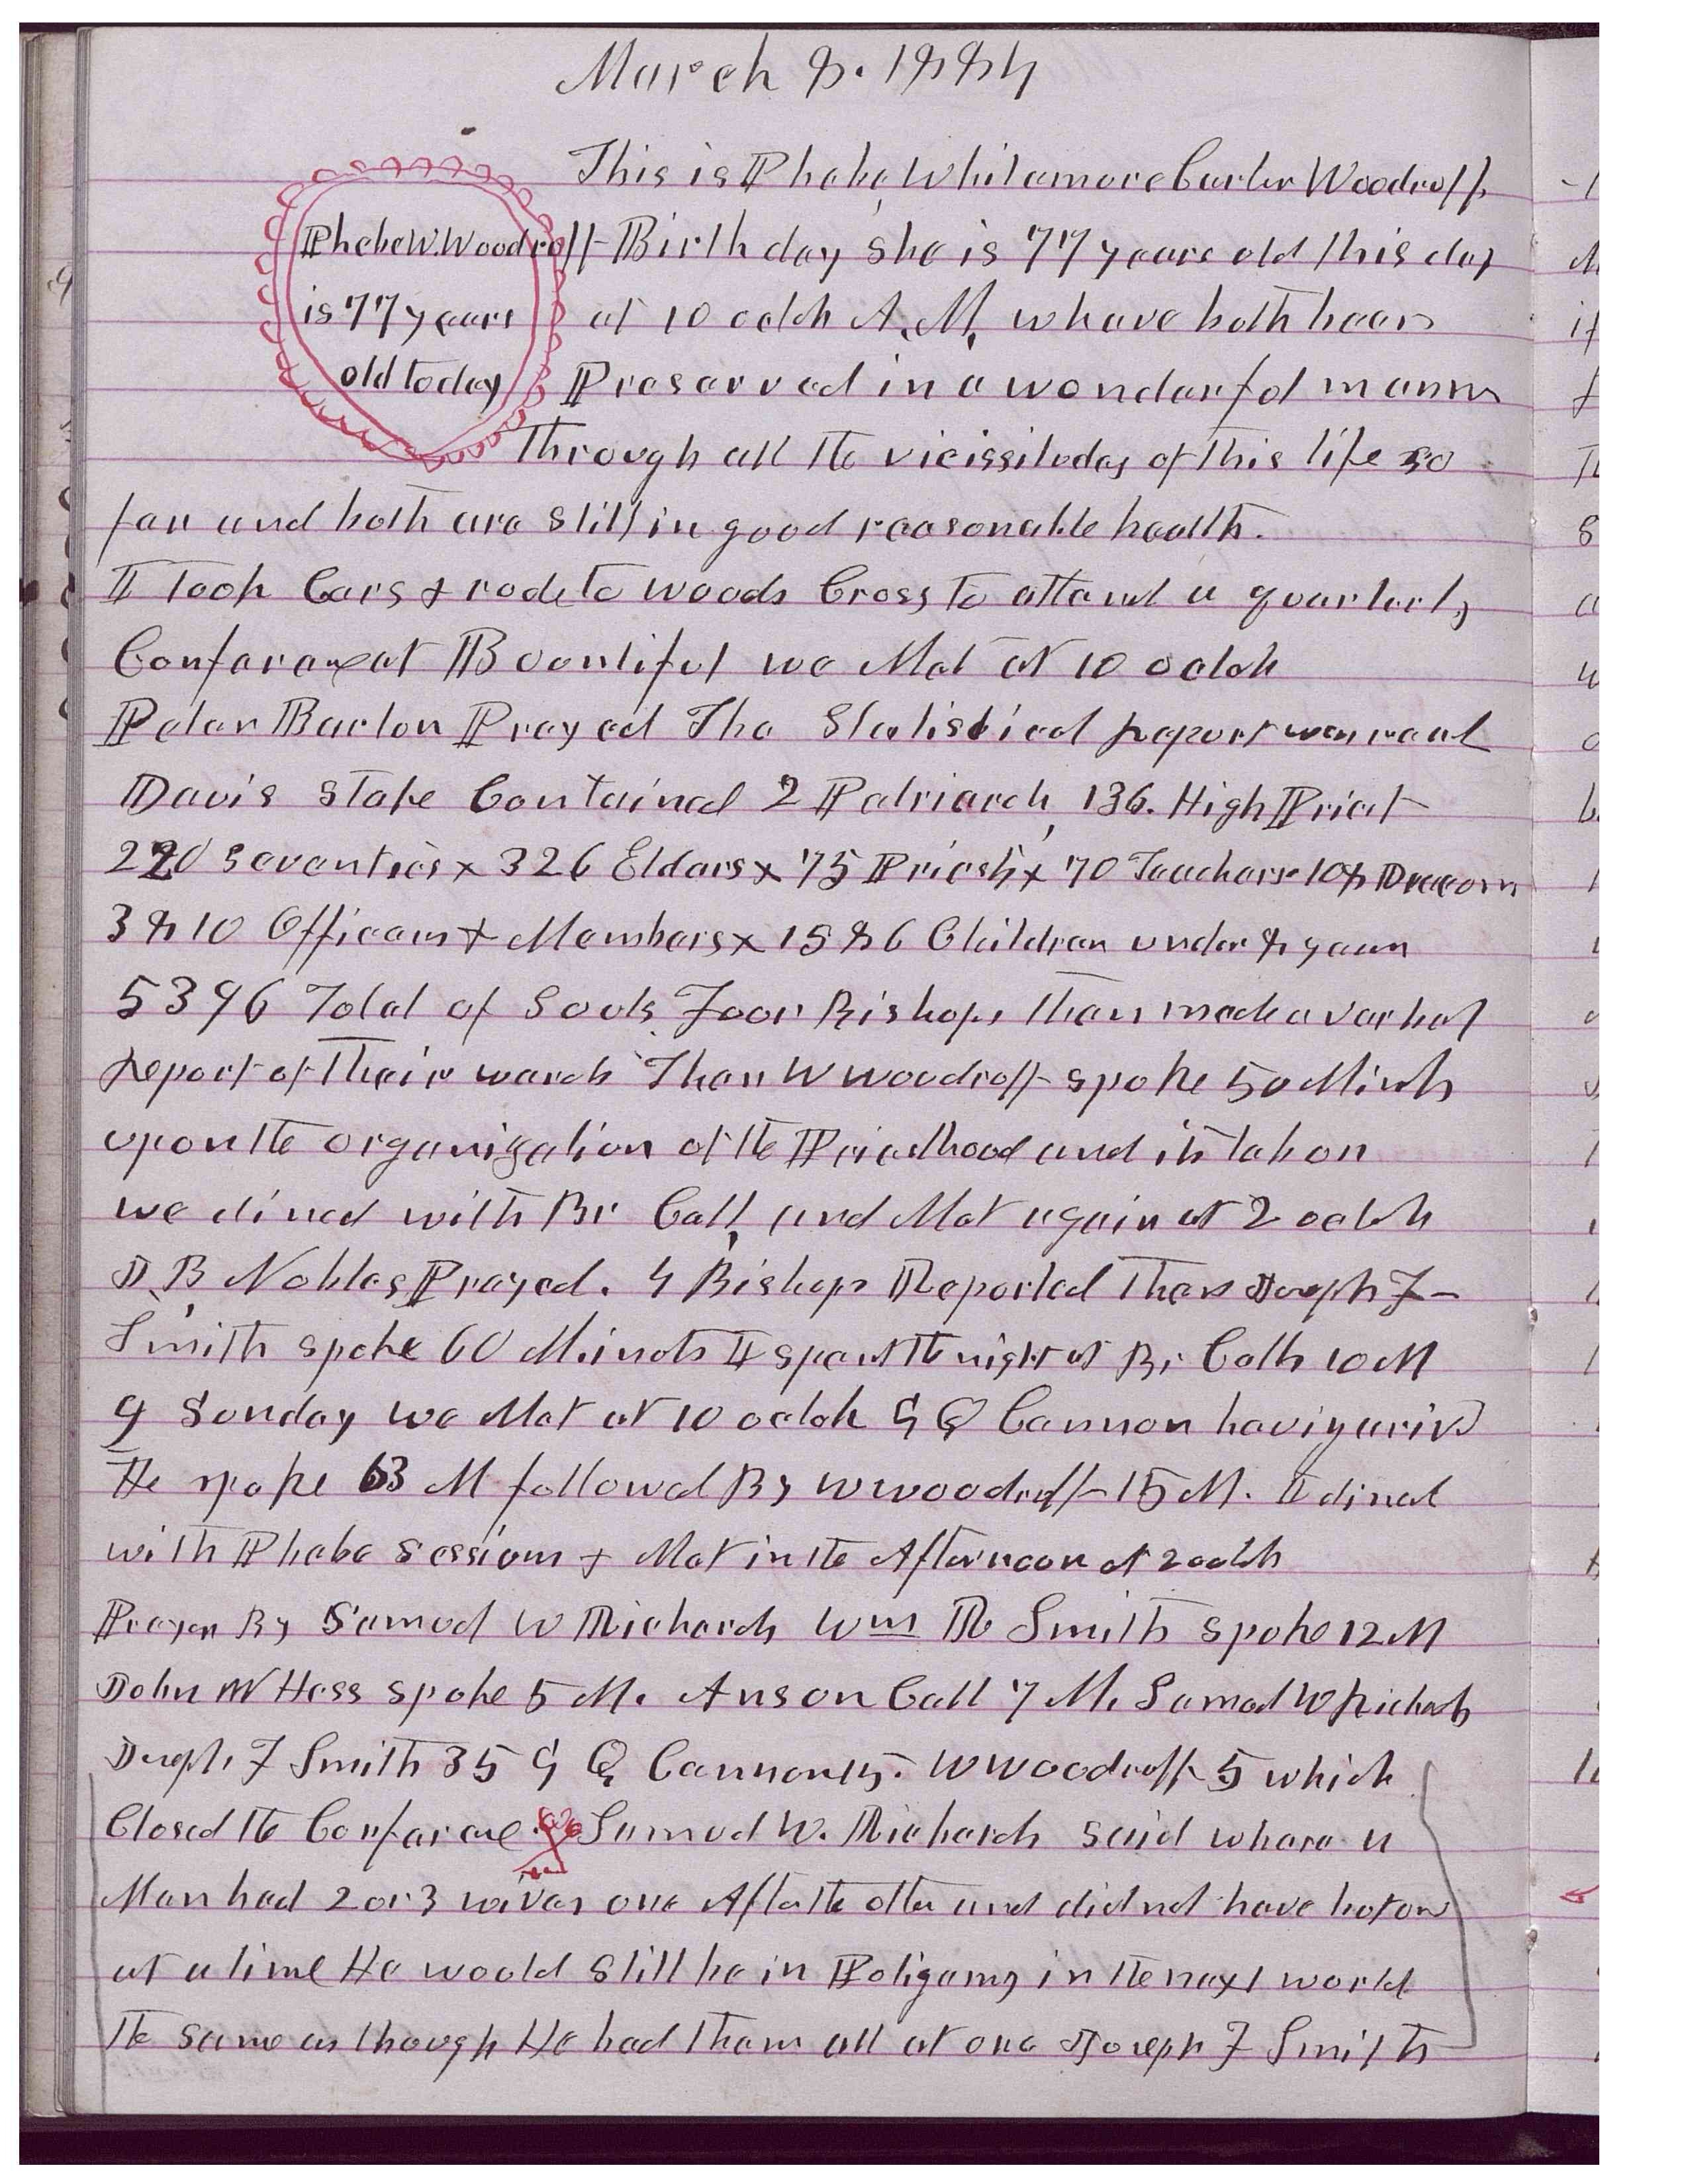 March 8. 1884
This is Phebe Whitemore Carter Woodruff
Phebe W. Woodruff
is 77 years
old today
Birth day she is 77 years old this day
at 10 oclok A.M. w have both been
Preserved in a wonderful manner
Through all the vicissitudes of this life so
far and both are still in good reasonable health.
I Took Cars & rode to Woods Cross to attend a quarterly
Conferance at Bountiful we Met at 10 oclok
Peter Barton Prayed The Statistical Report was read
Davis Stake Contained 2 Patriarch, 136. High Priest
220 Seventies x 326 Elders x 75 Priests x 70 Teachers 108 Deacons
3810 Officers & Members x 1586 Children under 8 years
5396 Total of Souls Four Bishops then made a verbal
Report of Their wards Then W Woodruff spoke 50 Minuts
upon the organization of the Priesthood and its
we dined with Br Call, and Met again at 2 oclok
J. B Nobles Prayed. 4 Bishops Reported Then Joseph F
Smith spoke 60 Minuts I spent the night at Br Calls 10 M
9 Sunday we Met at 10 oclok G Q Cannon having arivd
He spoke 63 M followed By W Woodruff 15 M. I dined
with Phebe Sessions & Met in the Afternoon at 2 oclok
Prayer By Samuel W Richards Wm R Smith spoke 12 M
John W Hess spoke 5 M. Anson Call 7 M. Samuel W Richards
Joseph F Smith 35 G Q Cannon 15. W Woodruff 5 which
Closed the Conferance. Samuel W. Richards said where a
Man had 2 or 3 wives one After the other and did not have but one
at a time He would still be in Poligamy in the next world
the same as though He had them all at once Joseph F Smith